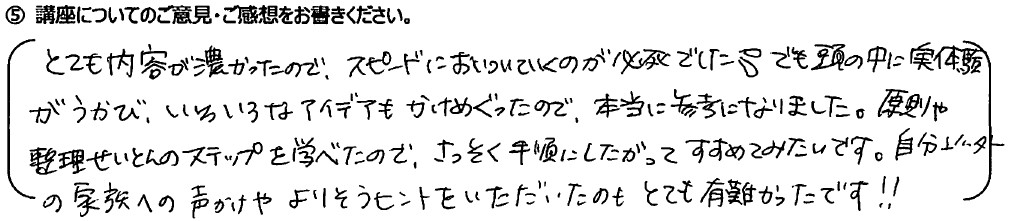 ⑤ 講座についてのご意見・ご感想をお書きください。
とても内容が濃かったので、スピードにおいついていくのが必死でした でも頭の中に実体験
がうかび、いろいろなアイデアもかけめぐったので、本当に参考になりました。原則や
整理せいとんのステップを学べたので、さっそく手順にしたがってすすめてみたいです。自分以外
の家族への声かけやよりそうヒントをいただいたのもとても有難かったです!!